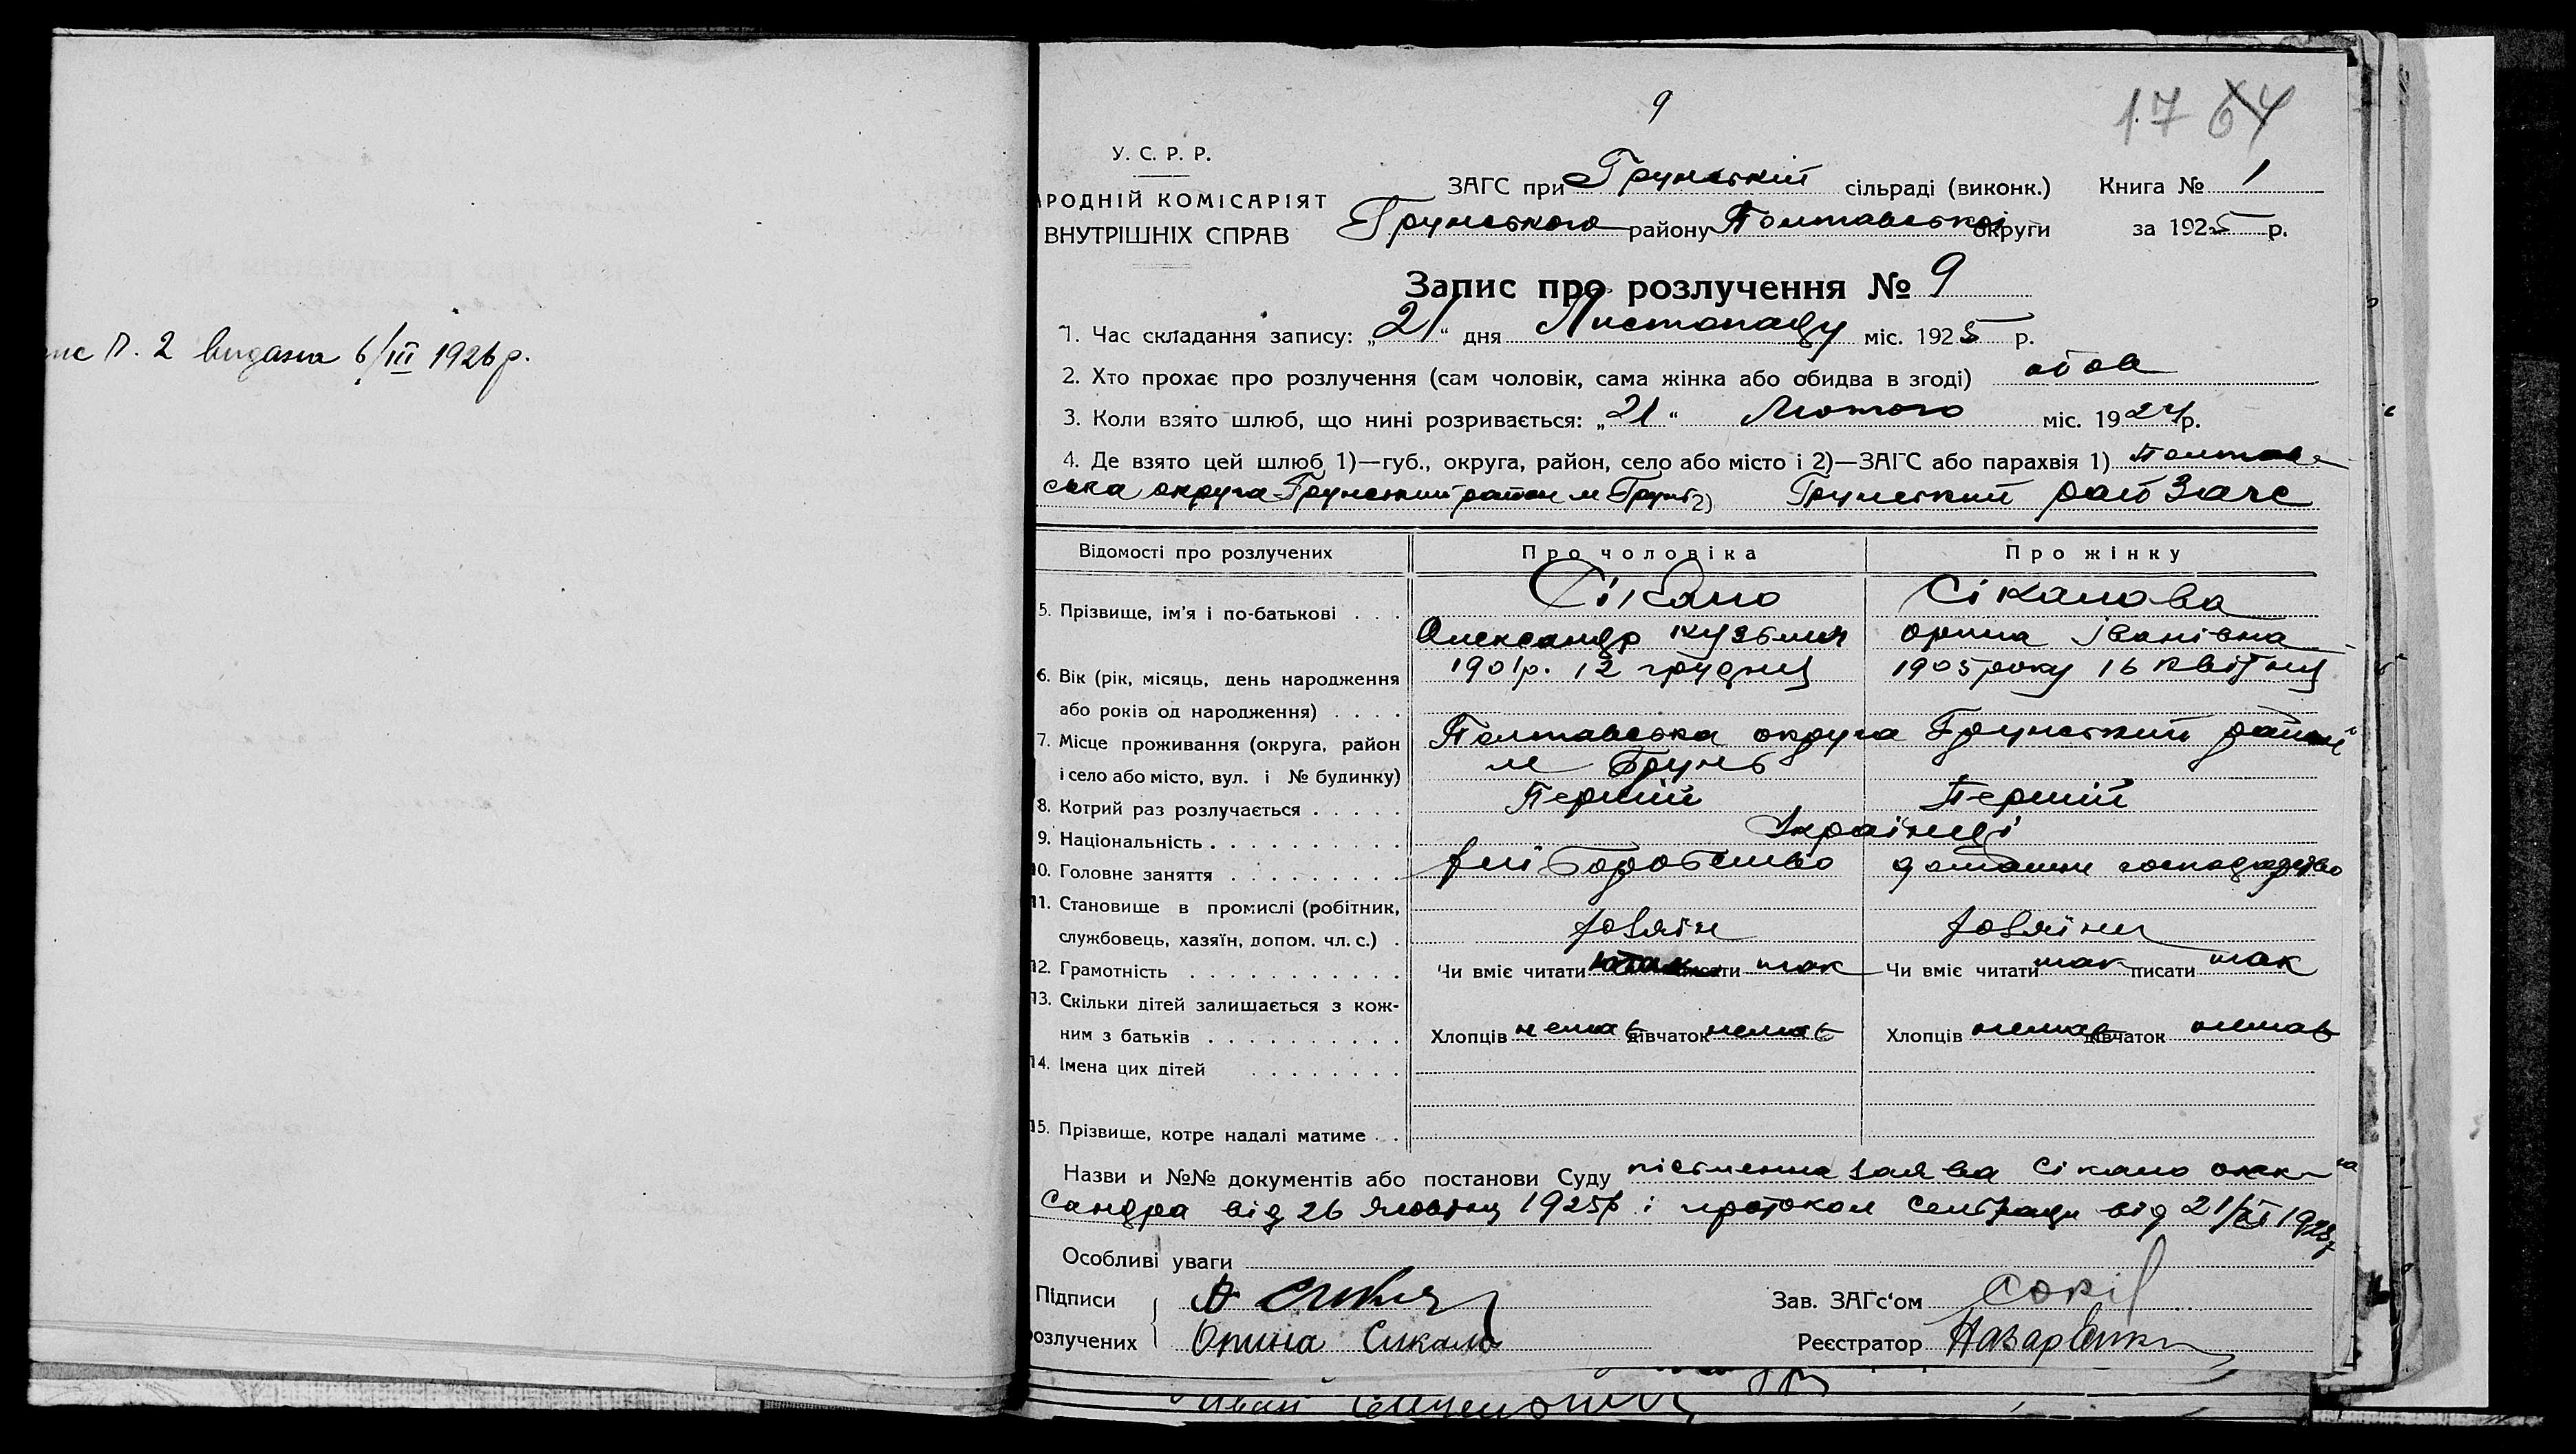 П. 2 видана 6/III 1926 р.
9
17 64
У. С. Р. Р.
РОДНІЙ КОМІСАРІЯТ
ВНУТРІШНІХ СПРАВ
ЗАГС при Грунській сільраді (виконк.) Книга № 1
Грунського району Полтавської округи за 1925 р.
Запис про розлучення № 9
1. Час складання запису: „21“ дня Листопаду міс. 1925 р.
2. Хто прохає про розлучення (сам чоловік, сама жінка або обидва в згоді) обоє
3. Коли взято шлюб, що нині розривається: „21“ Лютого міс. 1924 р.
4. Де взято цей шлюб 1)—губ., округа, район, село або місто і 2)—ЗАГС або парахвія 1) Полтав-
ська округа Грунський район м Грунь 2) Грунський рай Загс
Відомості про розлучених Про чоловіка Про жінку
5. Прізвище, ім'я і по-батькові . . . Сікало Сікалова
Олександр Кузьмич Орина Іванівна
6. Вік (рік, місяць, день народження 1901 р. 12 грудня 1905 року 16 Квітня
або років од народження) . . . .
7. Місце проживання (округа, район Полтавська округа Грунський район
і село або місто, вул. і № будинку) м Грунь
8. Котрий раз розлучається . . . . . Перший Перший
9. Національність . . . . . . . . . . Українці
10. Головне заняття . . . . . . . . . хліборобство домашнє господарство
11. Становище в промислі (робітник,
службовець, хазяїн, допом. чл. с.) . хозяїн хозяйни
12. Грамотність . . . . . . . . . . . Чи вміє читати так писати так Чи вміє читати так писати так
13. Скільки дітей залищається з кож-
ним з батьків . . . . . . . . . . Хлопців немає дівчаток немає Хлопців немає дівчаток немає
14. Імена цих дітей . . . . . . . .
15. Прізвище, котре надалі матиме . .
Назви и №№ документів або постанови Суду пісьменна заява Сікало Олек-
сандра від 26 Жовтня 1925 р і протокол від 21/XI 1925 р
Особливі уваги
Підписи А
розлучених Орина Сикало
Зав. ЗАГс'ом Сокіл
Реєстратор Назаренко
Иван